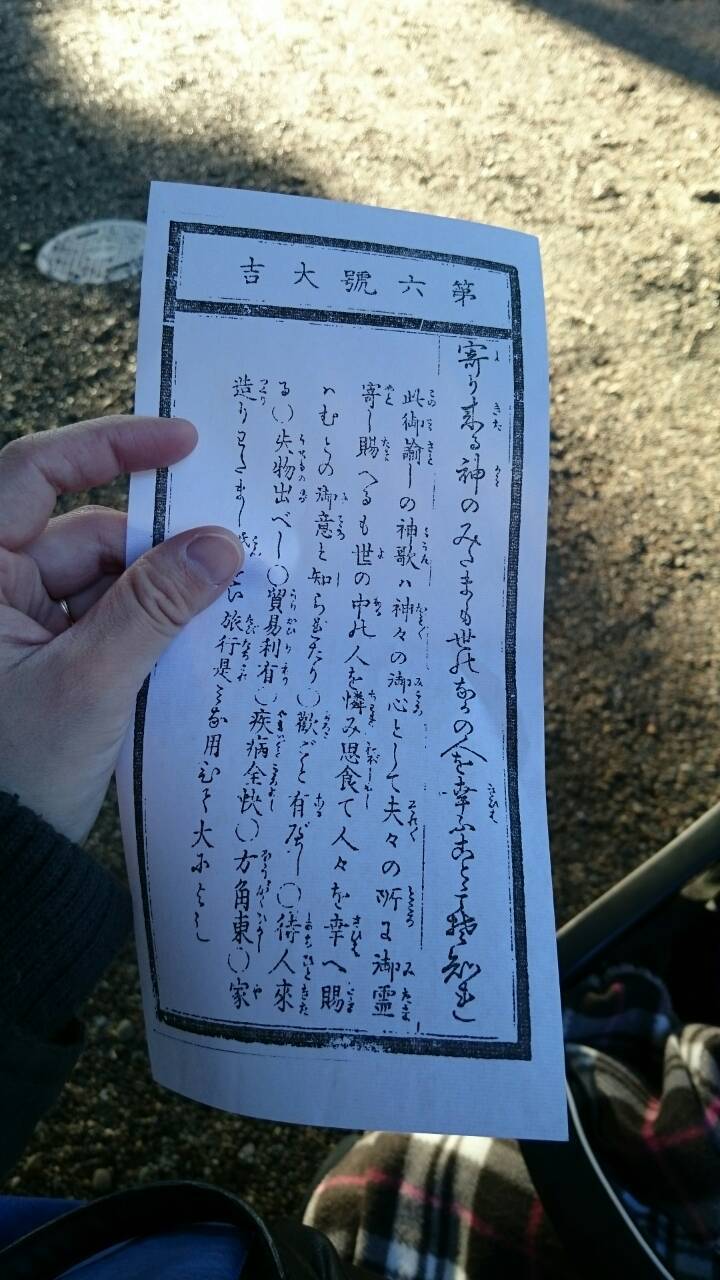 第六號大吉
寄り来る神のみたまも世の中の人を幸ふことを知れ
此御諭しの神歌ハ神々の御心として夫々の所に御霊
寄し賜へるも世の中の人を憐み思食て人々を幸へ賜
ハむとの御意と知られたり〇歓ごと有べし〇待人來
る〇失物出べし〇貿易利有〇疾病全快〇方角東〇家
造りわたまし 旅行是みな用ひて大によし